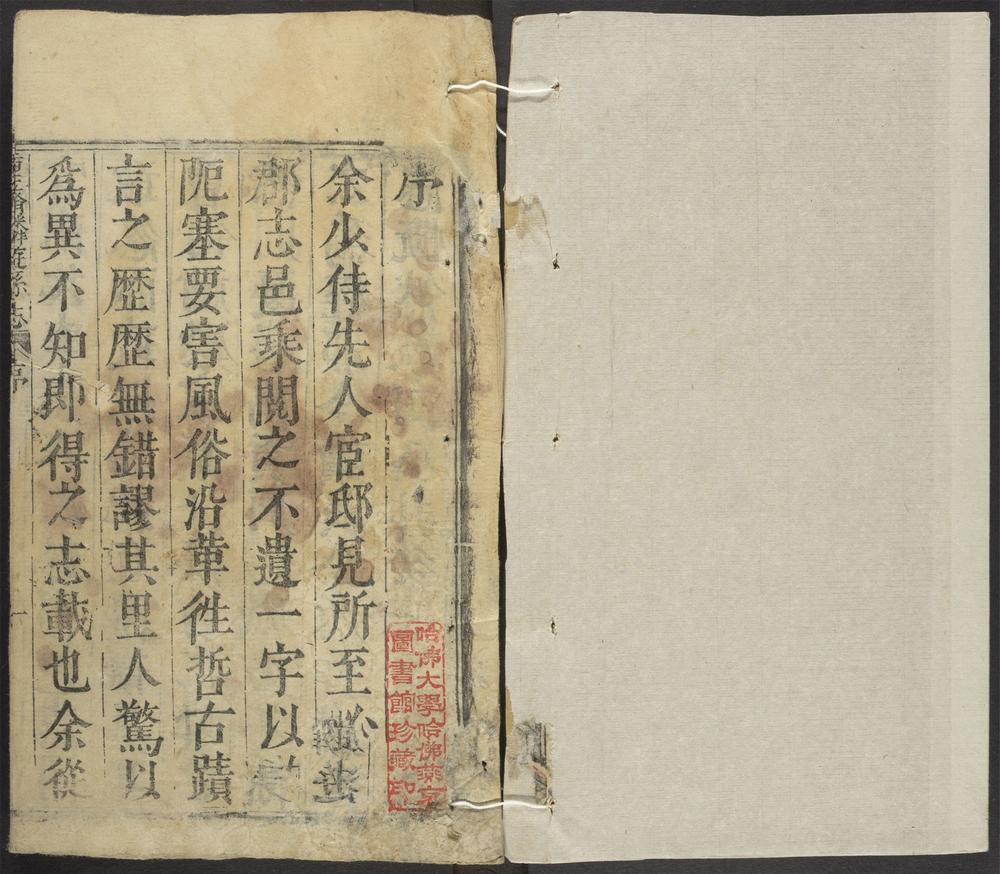 序
余少侍先人宦邸見所至必
郡志邑乘閱之不遺一字以
阨塞要害風俗沿革徃哲古蹟
言之歴歴無錯謬其里人驚以
為異不知即得之志載也余從
縣志 序 一
哈佛大學哈佛燕京
圖書館珍藏印